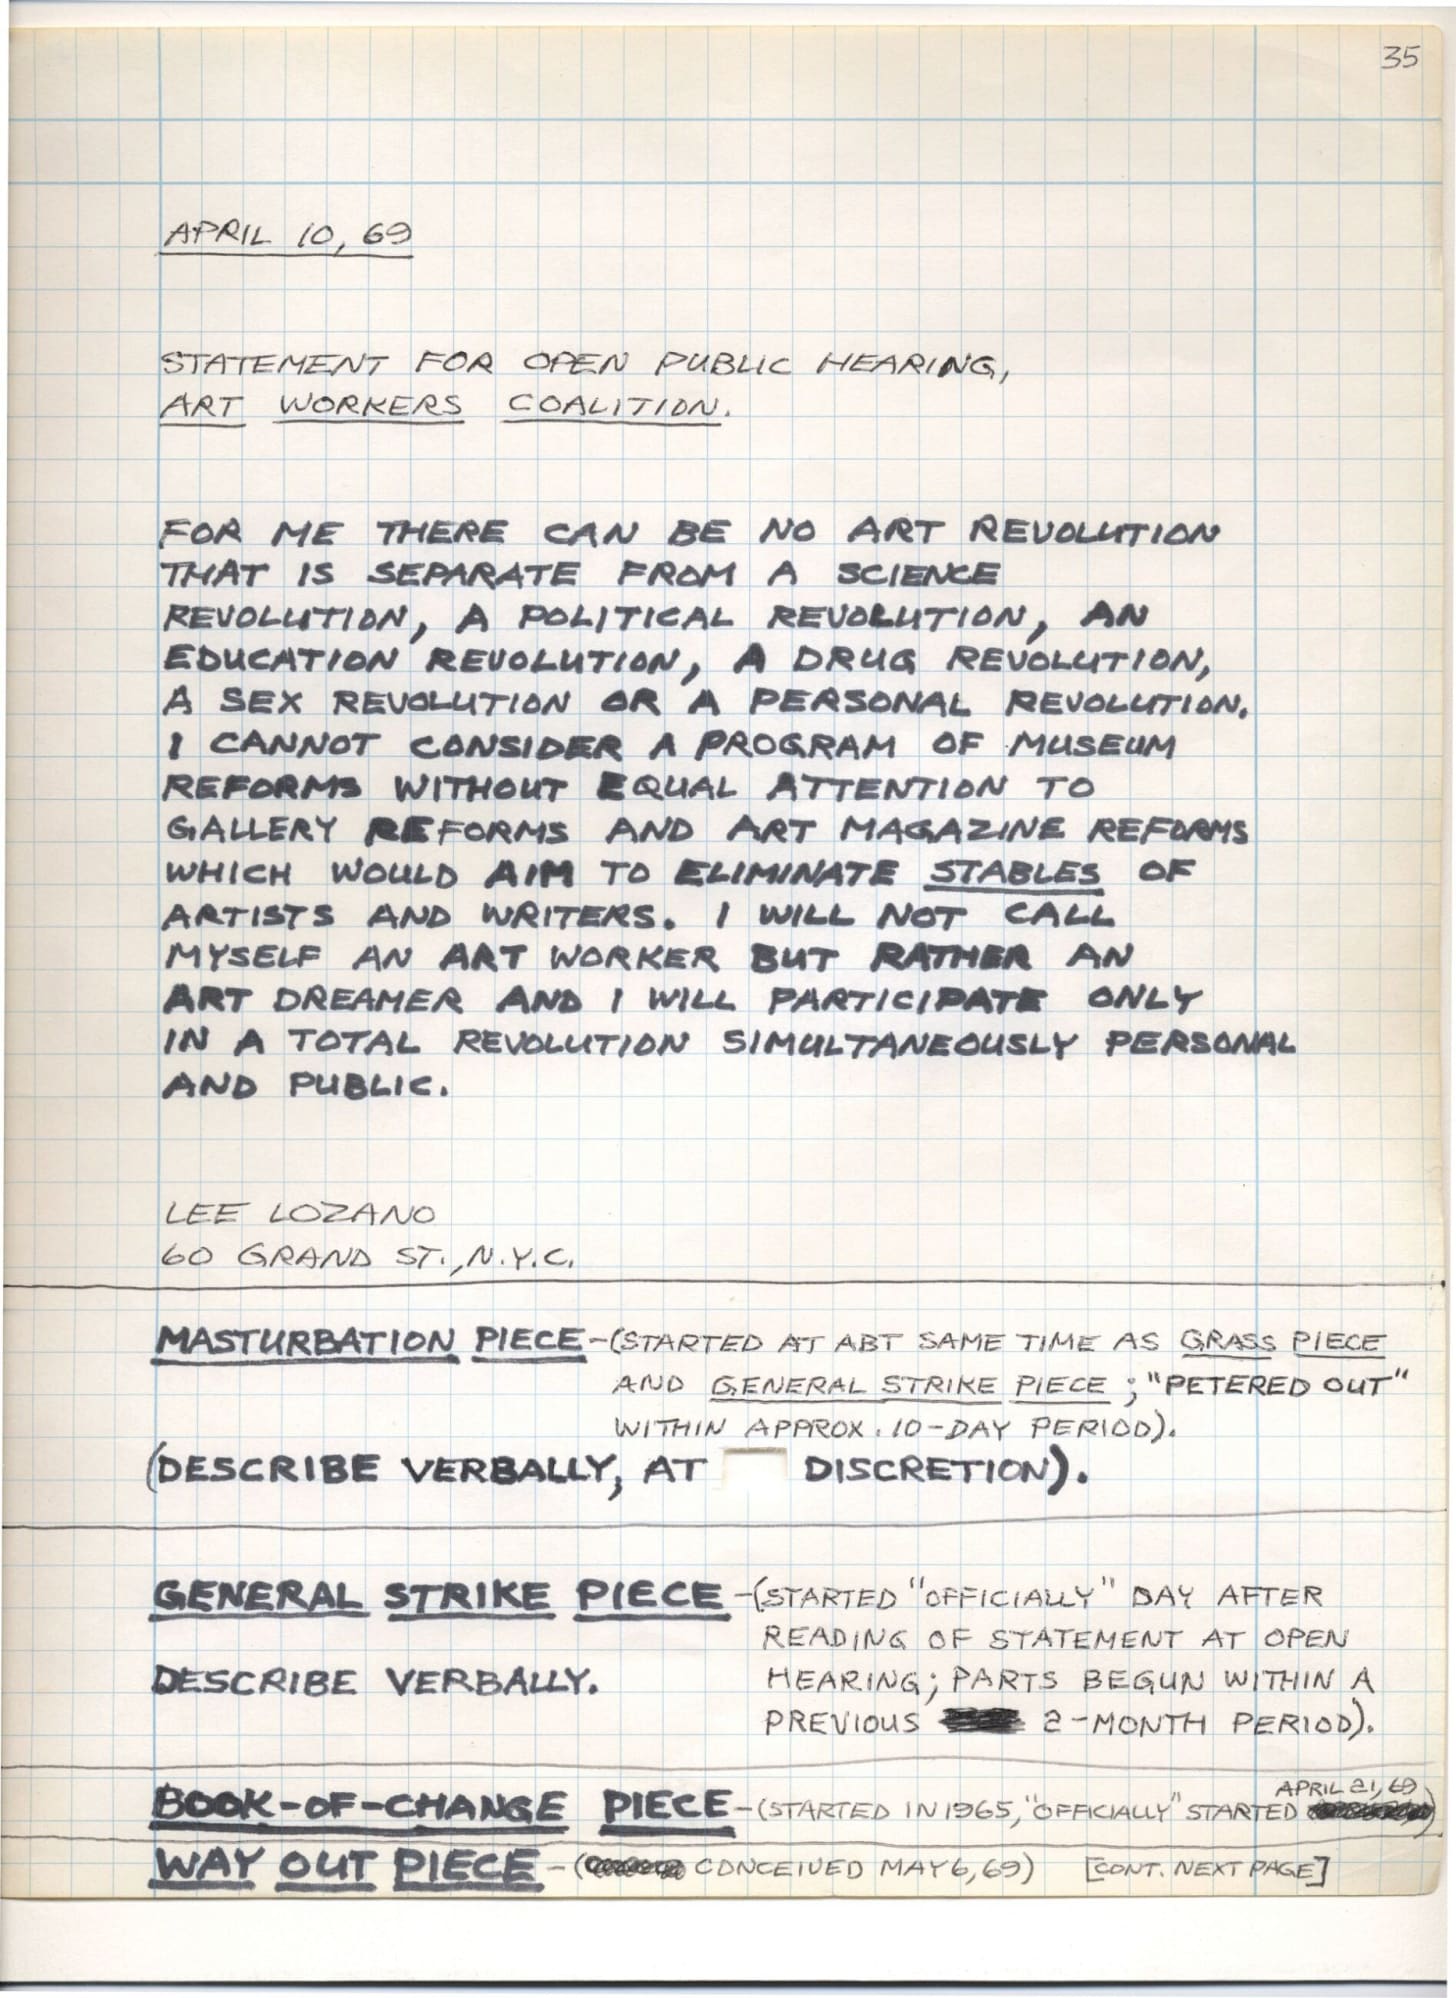 35
APRIL 10, 69
STATEMENT FOR OPEN PUBLIC HEARING,
ART WORKERS COALITION.
FOR ME THERE CAN BE NO ART REVOLUTION
THAT IS SEPARATE FROM A SCIENCE
REVOLUTION, A POLITICAL REVOLUTION, AN
EDUCATION REVOLUTION, A DRUG REVOLUTION,
A SEX REVOLUTION OR A PERSONAL REVOLUTION.
I CANNOT CONSIDER A PROGRAM OF MUSEUM
REFORMS WITHOUT EQUAL ATTENTION TO
GALLERY REFORMS AND ART MAGAZINE REFORMS
WHICH WOULD AIM TO ELIMINATE STABLES OF
ARTISTS AND WRITERS. I WILL NOT CALL
MYSELF AN ART WORKER BUT RATHER AN
ART DREAMER AND I WILL PARTICIPATE ONLY
IN A TOTAL REVOLUTION SIMULTANEOUSLY PERSONAL
AND PUBLIC.
LEE LOZANO
60 GRAND ST., N.Y.C.
MASTURBATION PIECE-(STARTED AT ABT SAME TIME AS GRASS PIECE
AND GENERAL STRIKE PIECE; "PETERED OUT"
WITHIN APPROX. 10-DAY PERIOD).
(DESCRIBE VERBALLY, AT DISCRETION).
GENERAL STRIKE PIECE-(STARTED "OFFICIALLY" DAY AFTER
READING OF STATEMENT AT OPEN
DESCRIBE VERBALLY. HEARING; PARTS BEGUN WITHIN A
PREVIOUS 2-MONTH PERIOD).
APRIL 21, 69
BOOK-OF-CHANGE PIECE-(STARTED IN 1965, "OFFICIALLY" STARTED )
WAY OUT PIECE-( CONCEIVED MAY 6, 69) [CONT. NEXT PAGE]